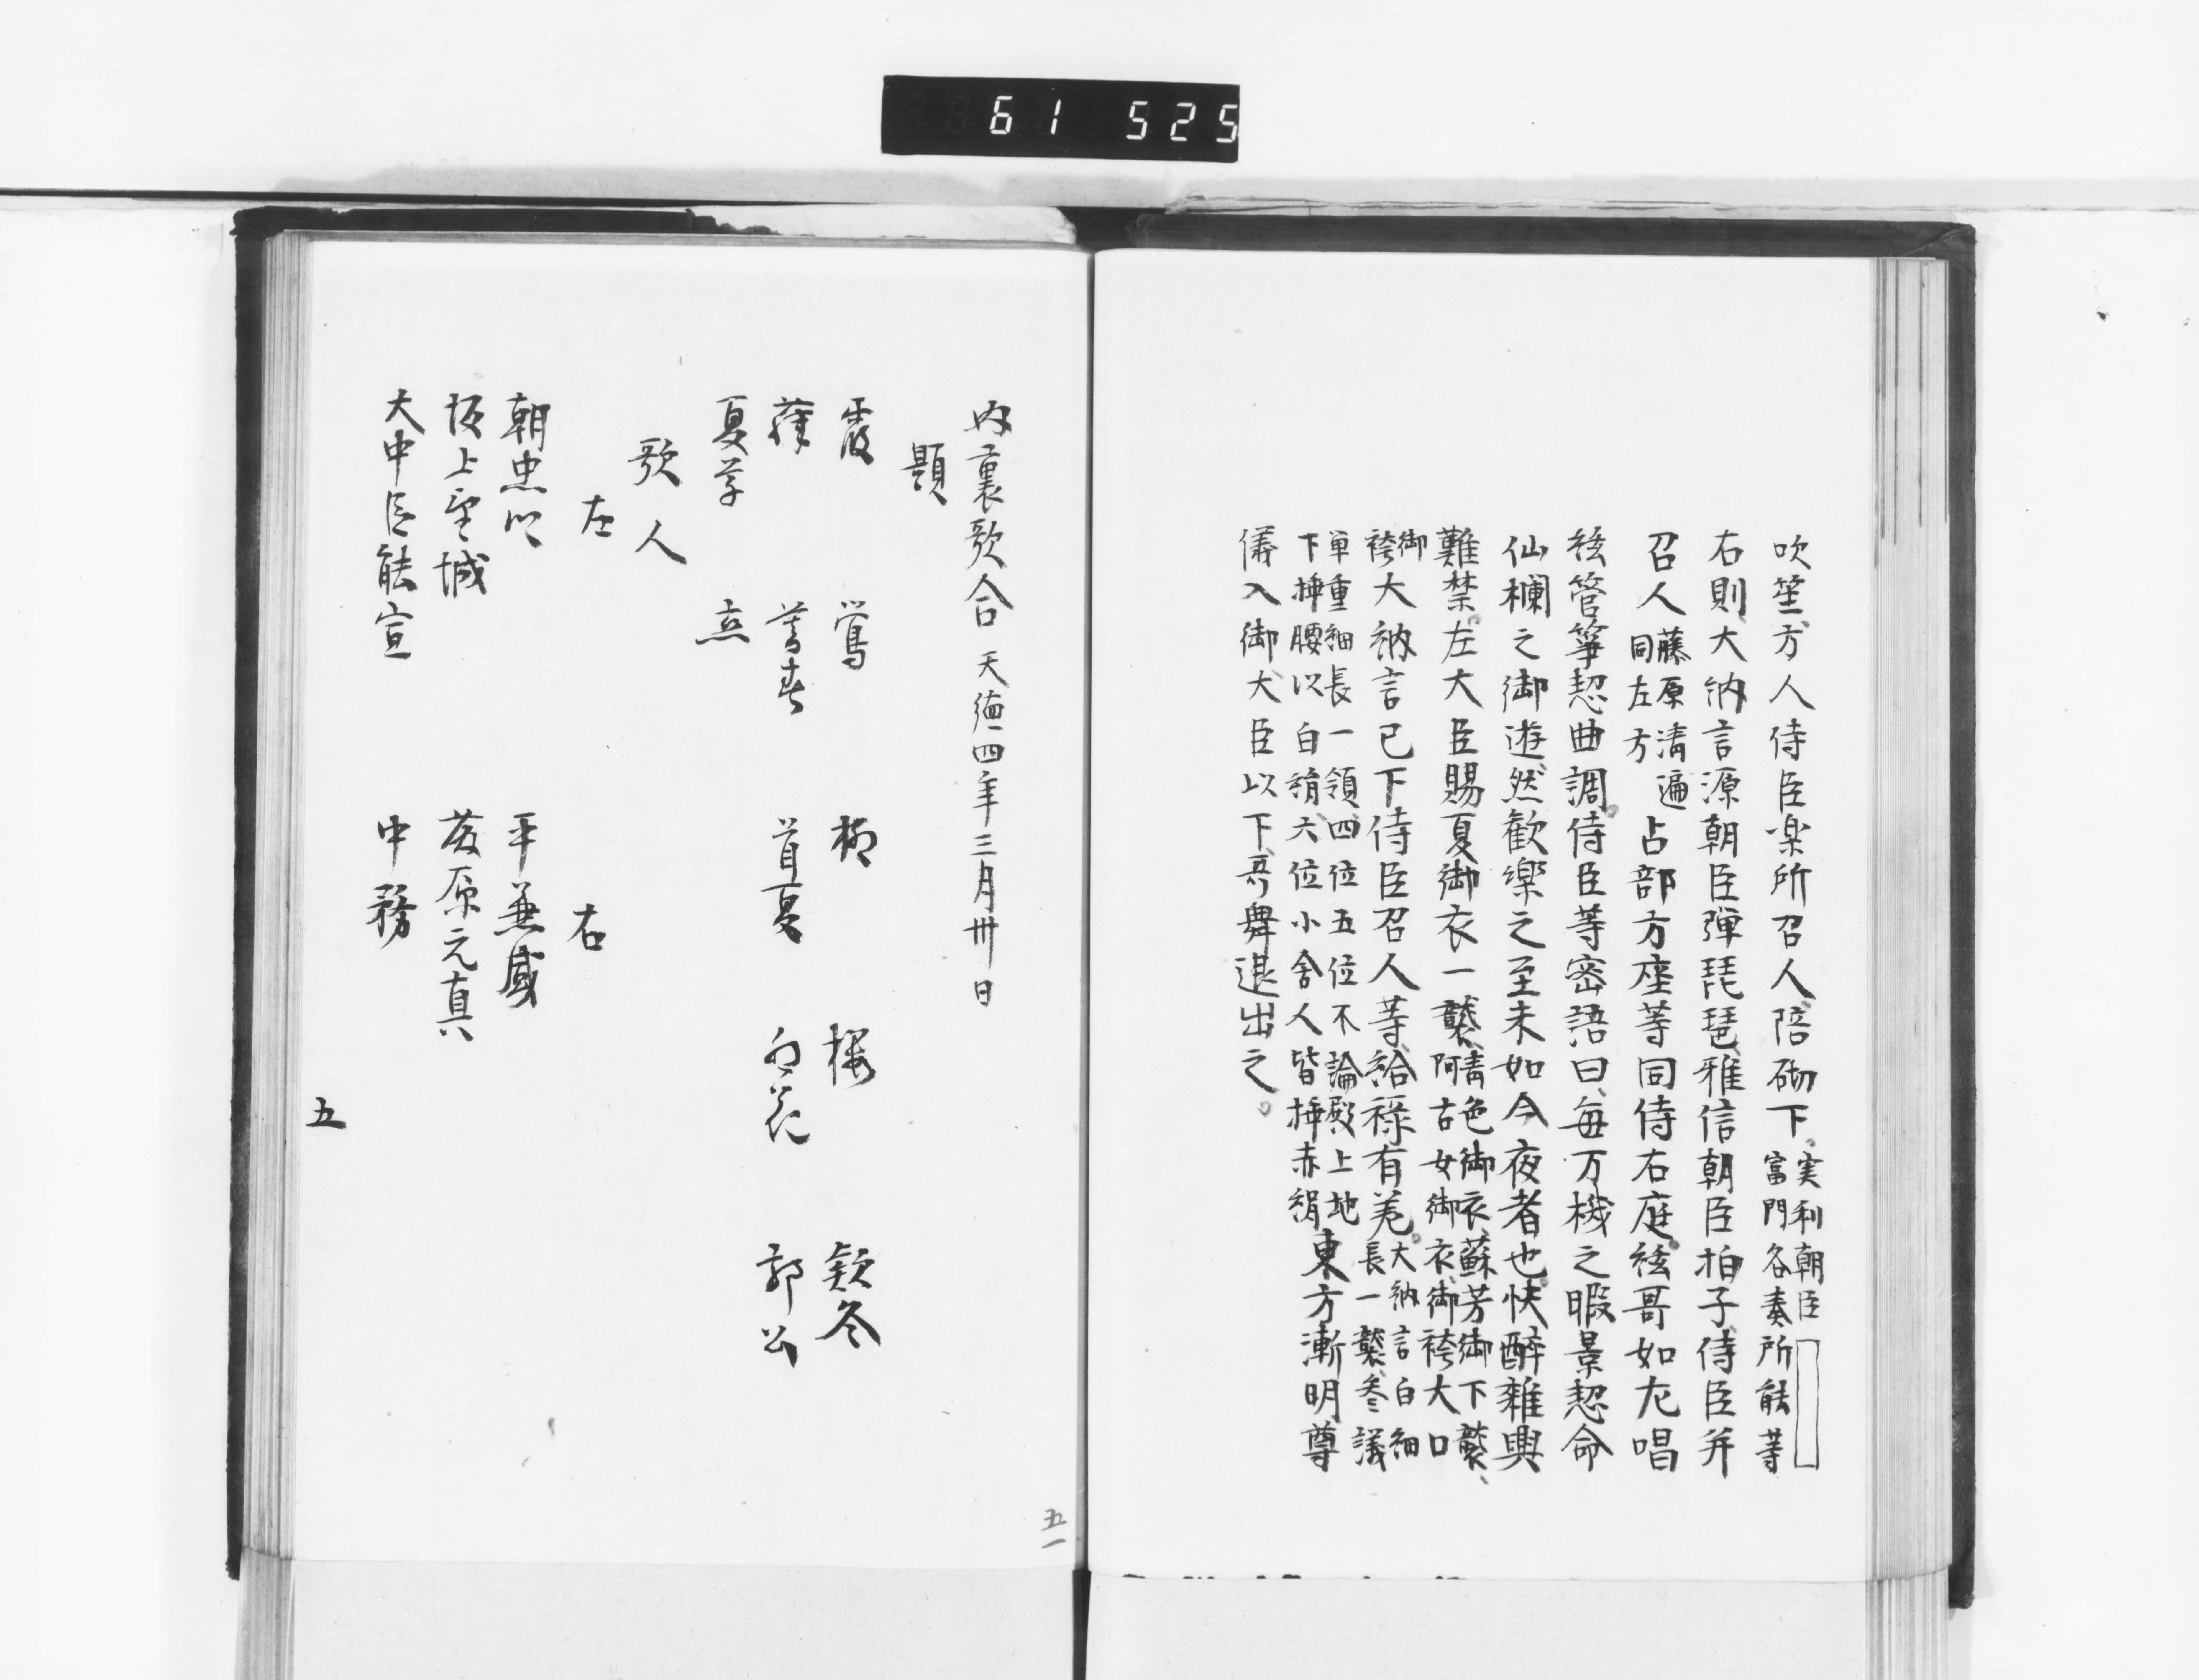 61 525
吹笙、方人侍臣楽所召人、陪砌下。実利朝臣富門各奏所能等
右則大納言源朝臣弾琵琶、雅信朝臣拍子、侍臣并
召人藤原清遍同左方占部方座等同侍右庭。絃哥如左唱
絃管箏惒曲調。侍臣等密語曰、毎万機之暇景惒命
仙欄之御遊、然歓楽之至未如今夜者也。快酔雑興
難禁。左大臣賜夏御衣一襲、青色御衣、蘇芳御下襲、阿古女御衣、御袴大口
御袴大納言已下侍臣召人等、給禄有差。大納言白細長一襲、参議
単重細長一領、四位五位不論殿上地下挿腰以白絹、六位小舎人皆挿赤絹東方漸明尊
儀入御大臣以下、哥舞退出之。
内裏歌合 天徳四年三月卅日
題
霞 鶯 柳 桜 欵冬
藤 暮春 首夏 卯花 郭公
夏草 恋
歌人
左 右
朝忠 平兼盛
坂上望城 藤原元真
大中臣能宣 中務
五
五一